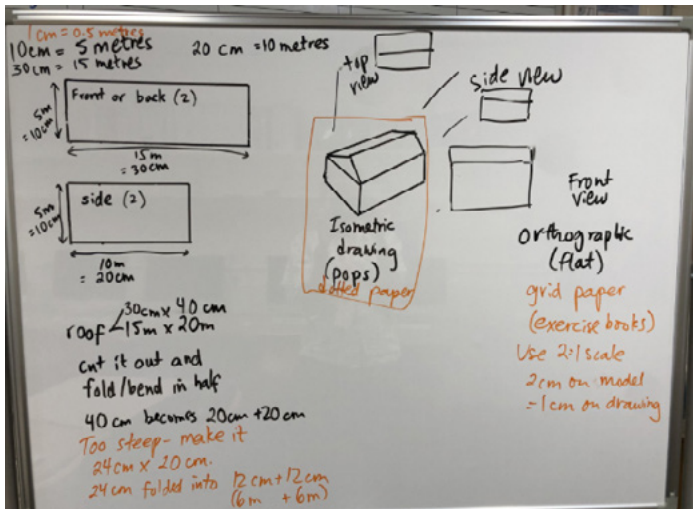 1cm = 0.5 metres
10cm = 5 metres
20 cm = 10 metres
30cm = 15 metres
Front or back (2)
5m
= 10cm
15m
= 30cm
side (2)
5m
= 10cm
10m
= 20cm
roof
30cm x 40 cm
15m x 20m
cut it out and
fold/bend in half
40 cm becomes 20cm + 20cm
Too steep - make it
24cm x 20cm.
24cm folded into 12cm + 12cm
(6m + 6m)
top
view
side view
Isometric
drawing
(pops)
dotted paper
Front
view
orthographic
(flat)
grid paper
(exercise books)
Use 2:1 scale
2cm on model
= 1cm on drawing